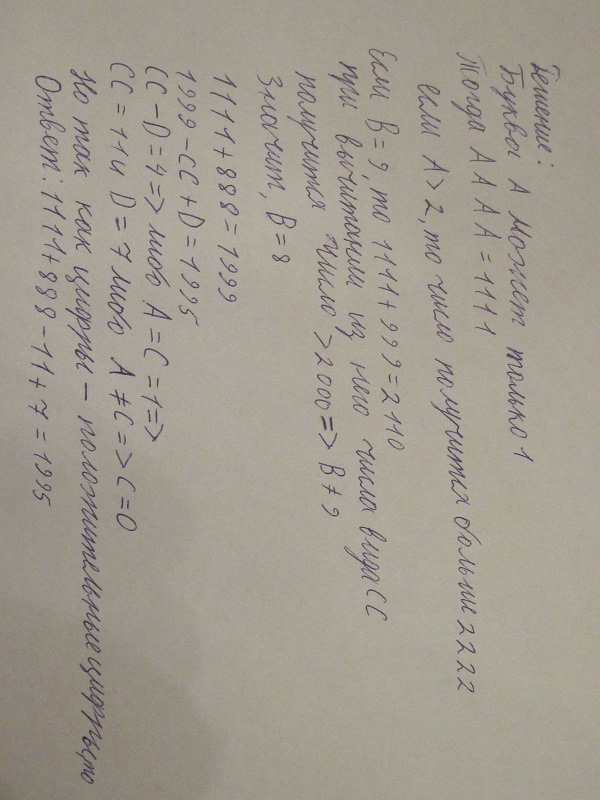 Решение:
Буквой А может только 1
Тогда АААА = 1111
если А > 2, то число получится больше 2222
Если В = 9, то 1111 + 999 = 2110
при вычитании из него числа вида СС
получится число > 2000 => В ≠ 9
Значит, В = 8
1111 + 888 = 1999
1999 - СС + D = 1995
СС - D = 4 => либо А = С = 1 =>
СС = 11 и D = 7 либо А ≠ С => С = 0
Но так как цифры - положительные цифры, то
Ответ: 1111 + 888 - 11 + 7 = 1995